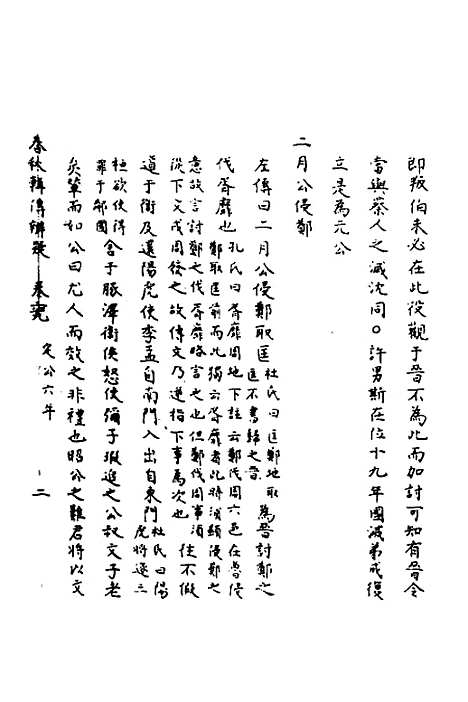 即叛伯未必在此役觀于晉不為此而加討可知有晉令
當與蔡人之滅沈同〇許男斯在位十九年國滅弟成復
立是為元公
二月公侵鄭
左傳曰二月公侵鄭取匡杜氏曰匡鄭地取匡不書歸之晉為晉討鄭之
伐胥靡也孔氏曰胥靡周地下註云鄭伐周六邑在魯侵
鄭取匡前而此獨云胥靡者此時須顯侵鄭之
意故言討鄭之伐胥靡略言之也但鄭伐周事須
從下文戍周後之故傳文乃進指下事為次也往不假
道于衛及還陽虎使季孟自南門入出自東門杜氏曰陽虎將逐三
桓欲使得罪于鄰國舍于豚澤衛侯怒使彌子瑕追之公叔文子老
矣輦而如公曰尤人而效之非禮也昭公之難君將以文
春秋辨傳辨疑 卷 定公六年 二